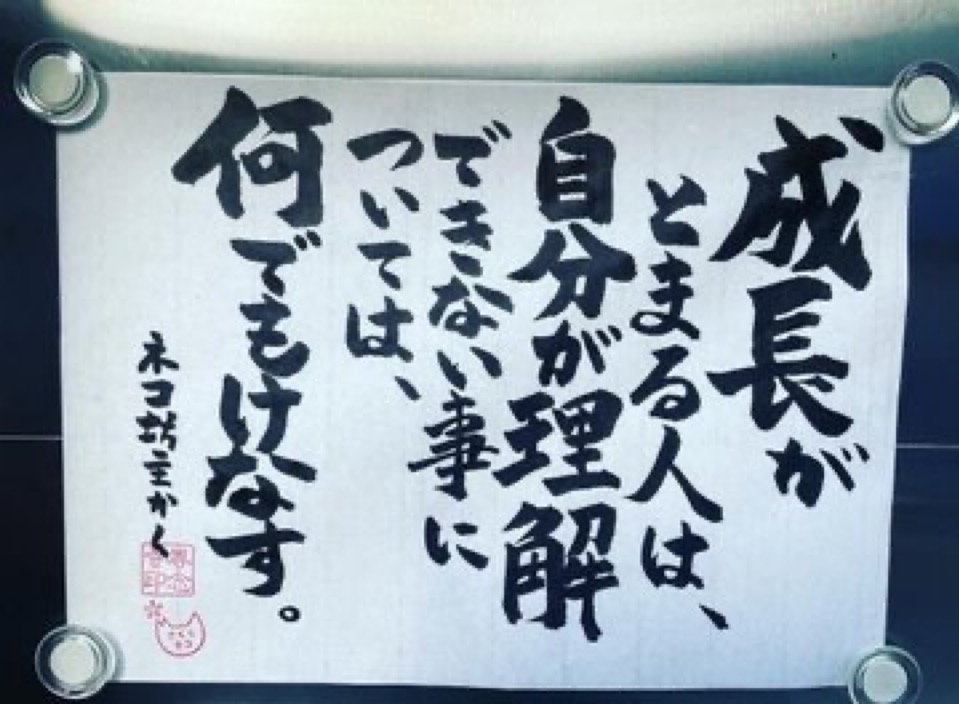 成長が
とまる人は、
自分が理解
できない事に
ついては、
何でもけなす。
ネコ坊主かく
専念
寺印